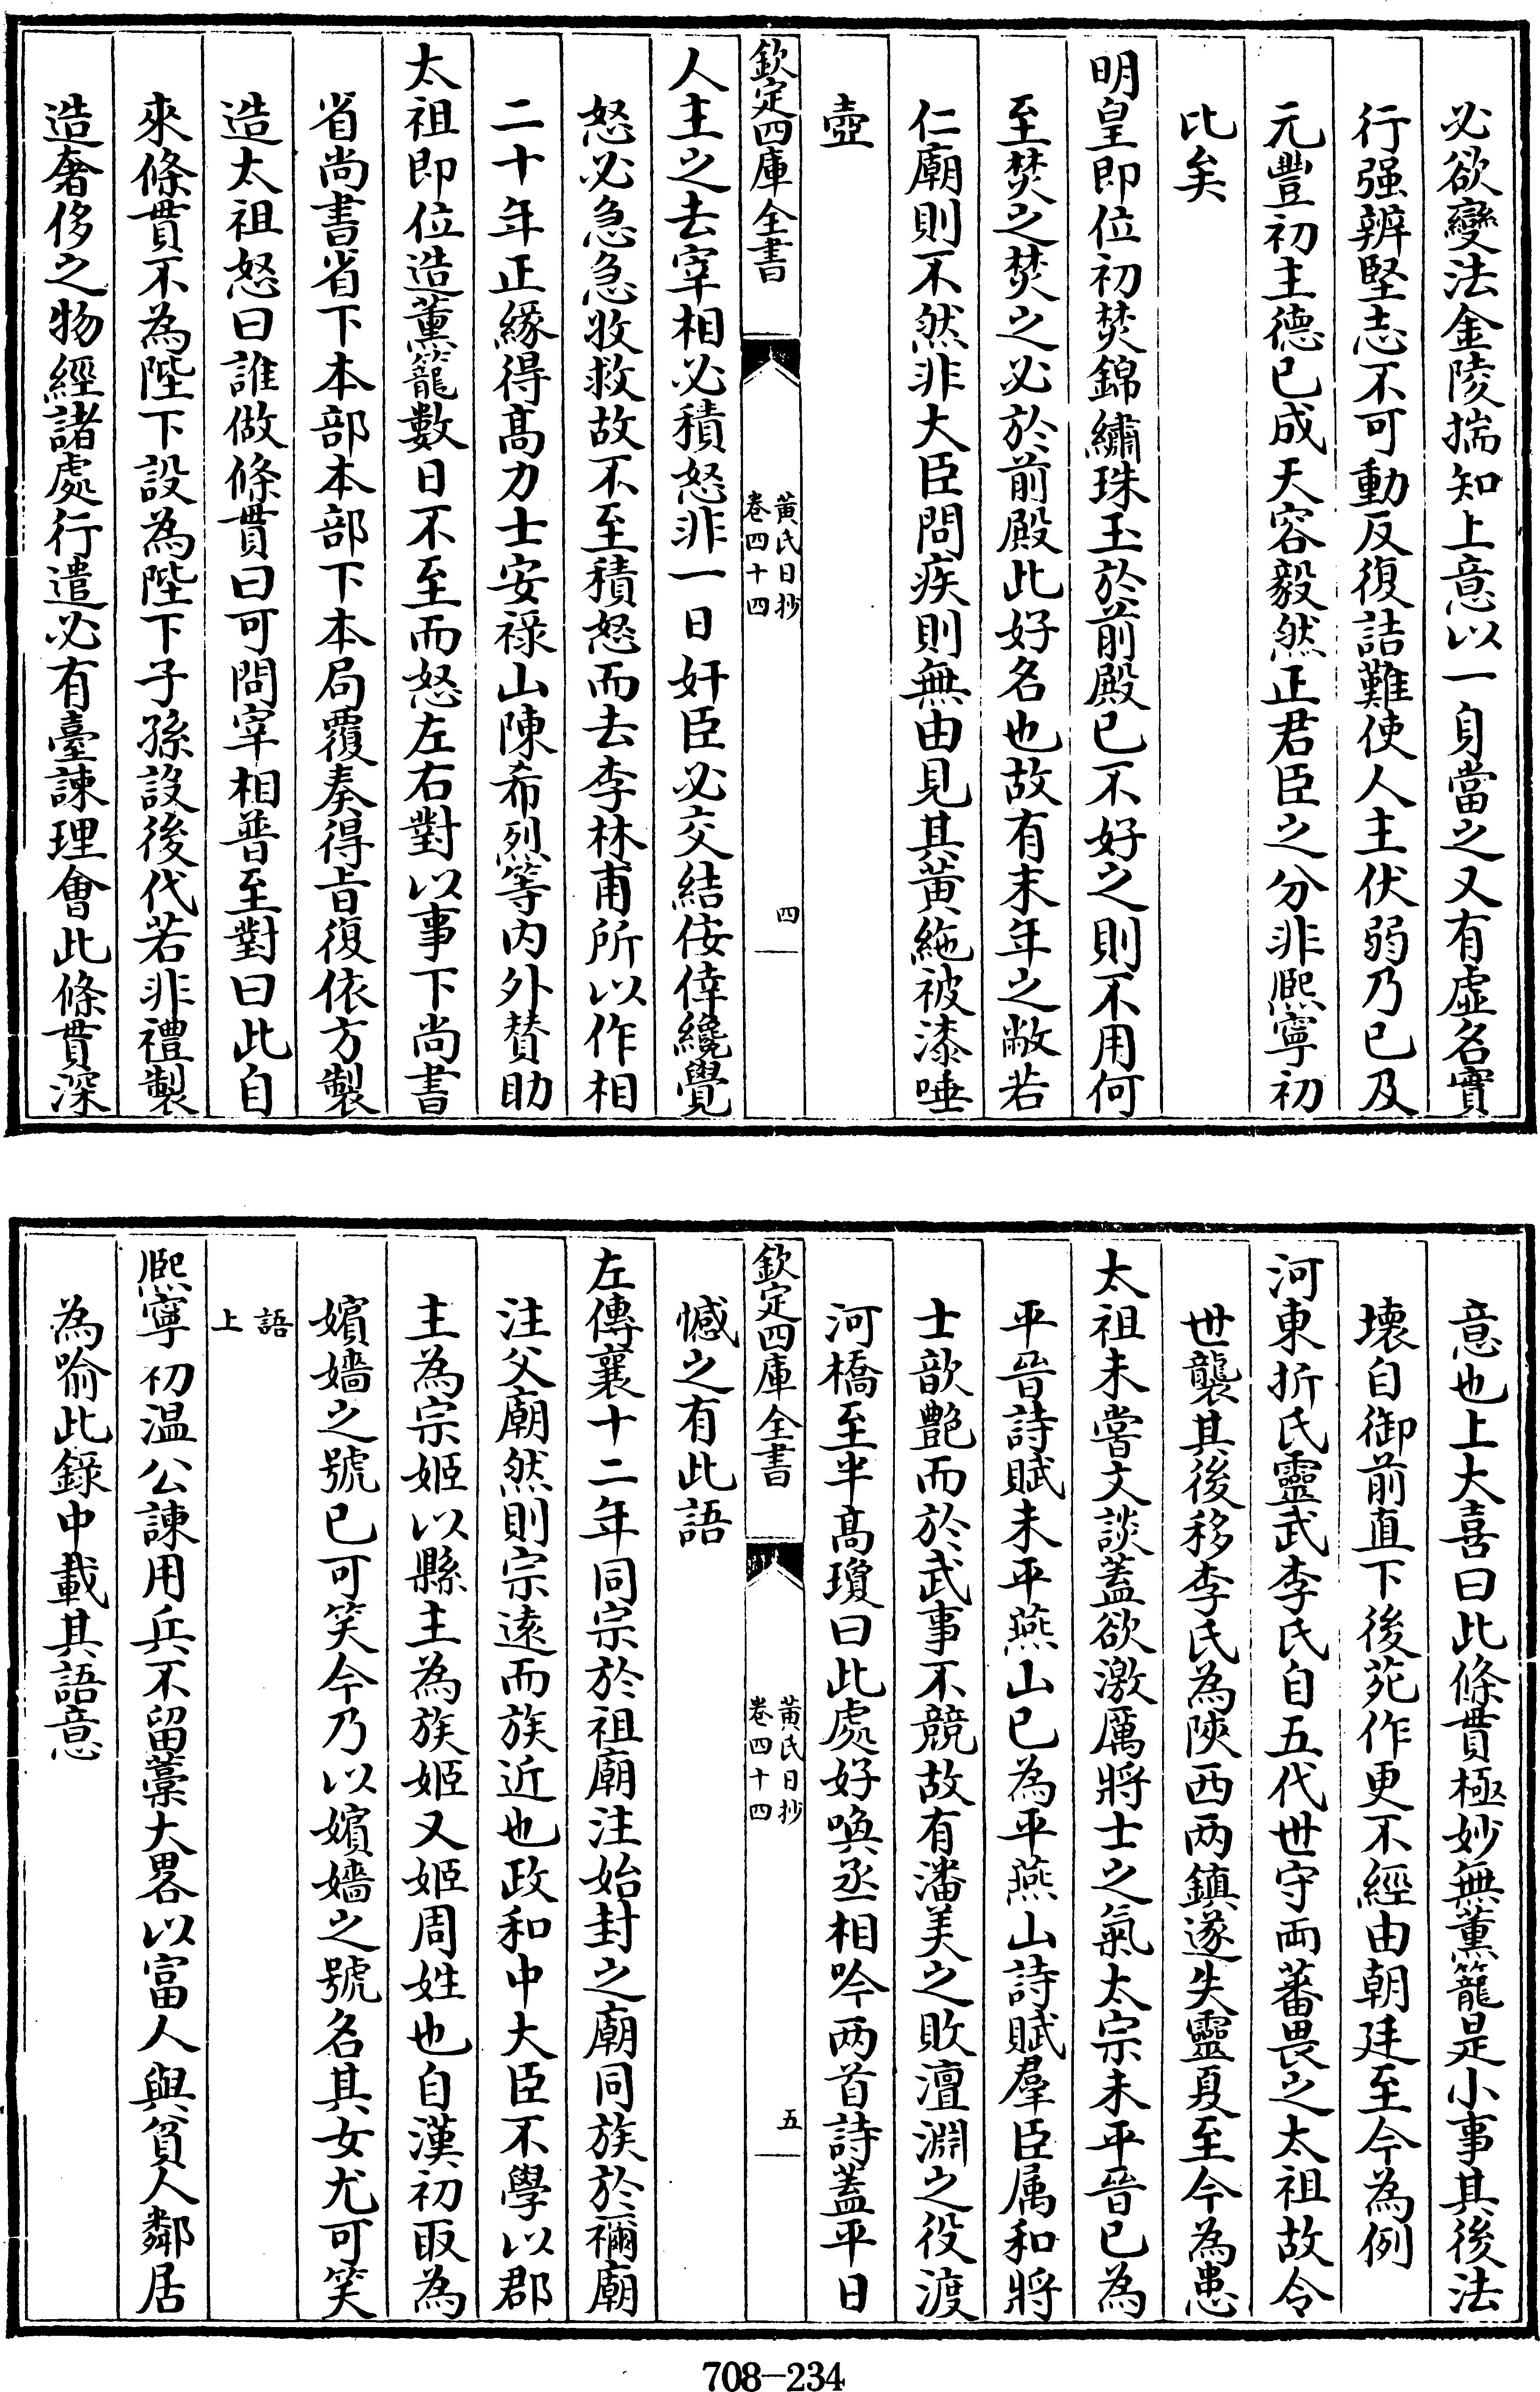 必欲變法金陵揣知上意以一身當之又有虛名實
行强辨堅志不可動反復詰難使人主伏弱乃已及
元豐初主德已成天容毅然正君臣之分非熈寧初
比矣
明皇即位初焚錦繡珠玉於前殿已不好之則不用何
至焚之焚之必於前殿此好名也故有末年之敝若
仁廟則不然非大臣問疾則無由見其黄絁被漆唾
壺
欽定四庫全書
黄氏日抄
卷四十四
四
人主之去宰相必積怒非一日奸臣必交結佞倖纔覺
怒必急急收救故不至積怒而去李林甫所以作相
二十年正緣得髙力士安禄山陳希烈等内外賛助
太祖即位造薫籠數日不至而怒左右對以事下尚書
省尚書省下本部本部下本局覆奏得㫖復依方製
造太祖怒曰誰做條貫曰可問宰相普至對曰此自
來條貫不為陛下設為陛下子孫設後代若非禮製
造奢侈之物經諸處行遣必有臺諫理會此條貫深
意也上大喜曰此條貫極妙無薫籠是小事其後法
壊自御前直下後苑作更不經由朝廷至今為例
河東折氏靈武李氏自五代世守兩蕃畏之太祖故令
世襲其後移李氏為陜西两鎮遂失靈夏至今為患
太祖未嘗文談蓋欲激厲將士之氣太宗未平晉已為
平晉詩賦未平燕山已為平燕山詩賦羣臣属和將
士歆艶而於武事不競故有潘美之敗澶淵之役渡
河橋至半髙瓊曰此處好喚丞相吟两首詩蓋平日
欽定四庫全書
黄氏日抄
卷四十四
五
憾之有此語
左傳襄十二年同宗於祖廟注始封之廟同族於禰廟
注父廟然則宗逺而族近也政和中大臣不學以郡
主為宗姬以縣主為族姬又姬周姓也自漢初取為
嬪嬙之號已可笑今乃以嬪嬙之號名其女尤可笑
語
上
熈寧初温公諫用兵不留藁大畧以富人與貧人鄰居
為喻此錄中載其語意
708-234